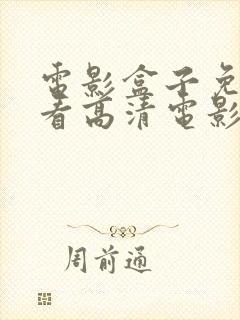 電影盒子免
看高清電影
周前通